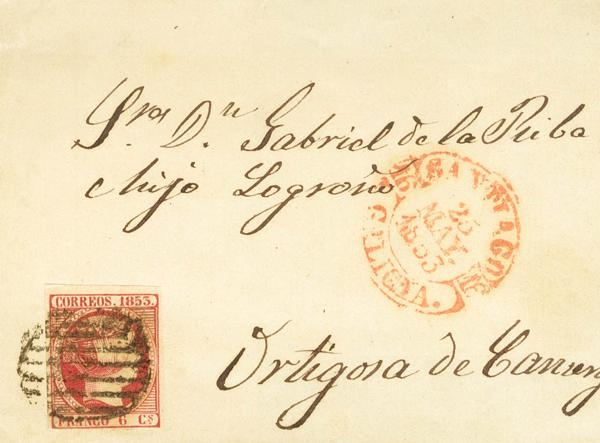 Sres Dn Gabriel de la Riba
é hijo Logroño
SANTIAGO
25
MAY.
1853
GALICIA.
CORREOS. 1853.
FRANCO 6 Cs
Ortigosa de